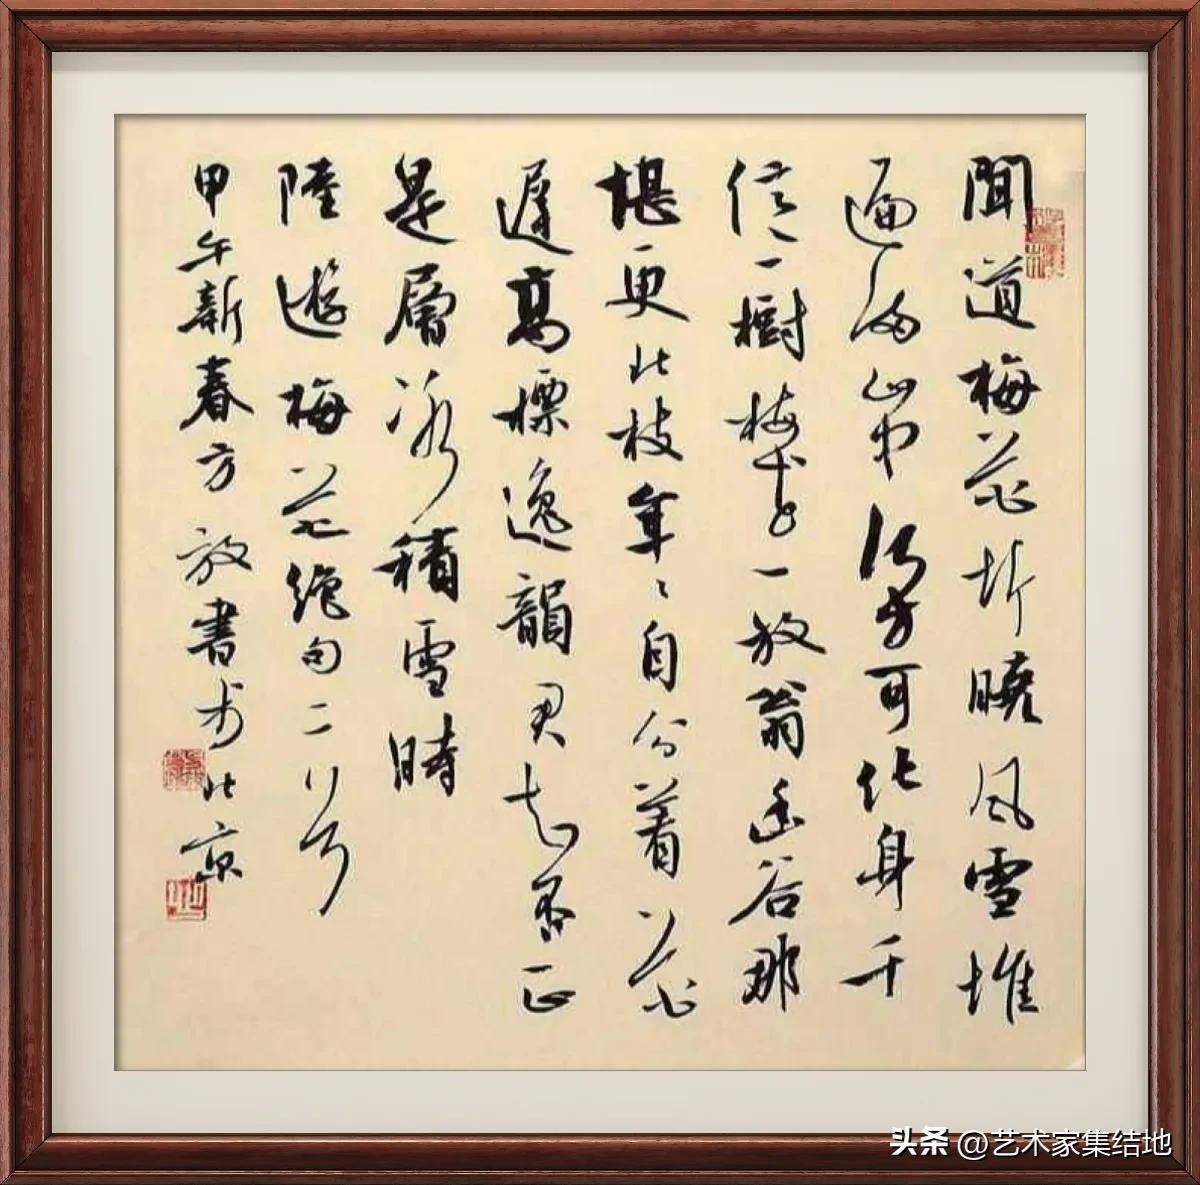 聞道梅花坼曉風雪堆
遍滿山中何方可化身千
億一樹梅花一放翁幽谷那
堪更北枝年〻自分着花
遲高標逸韻君知否正
是層冰積雪時
陸遊梅花絕句二首
甲午新春方放書於北京
头条 @艺术家集结地